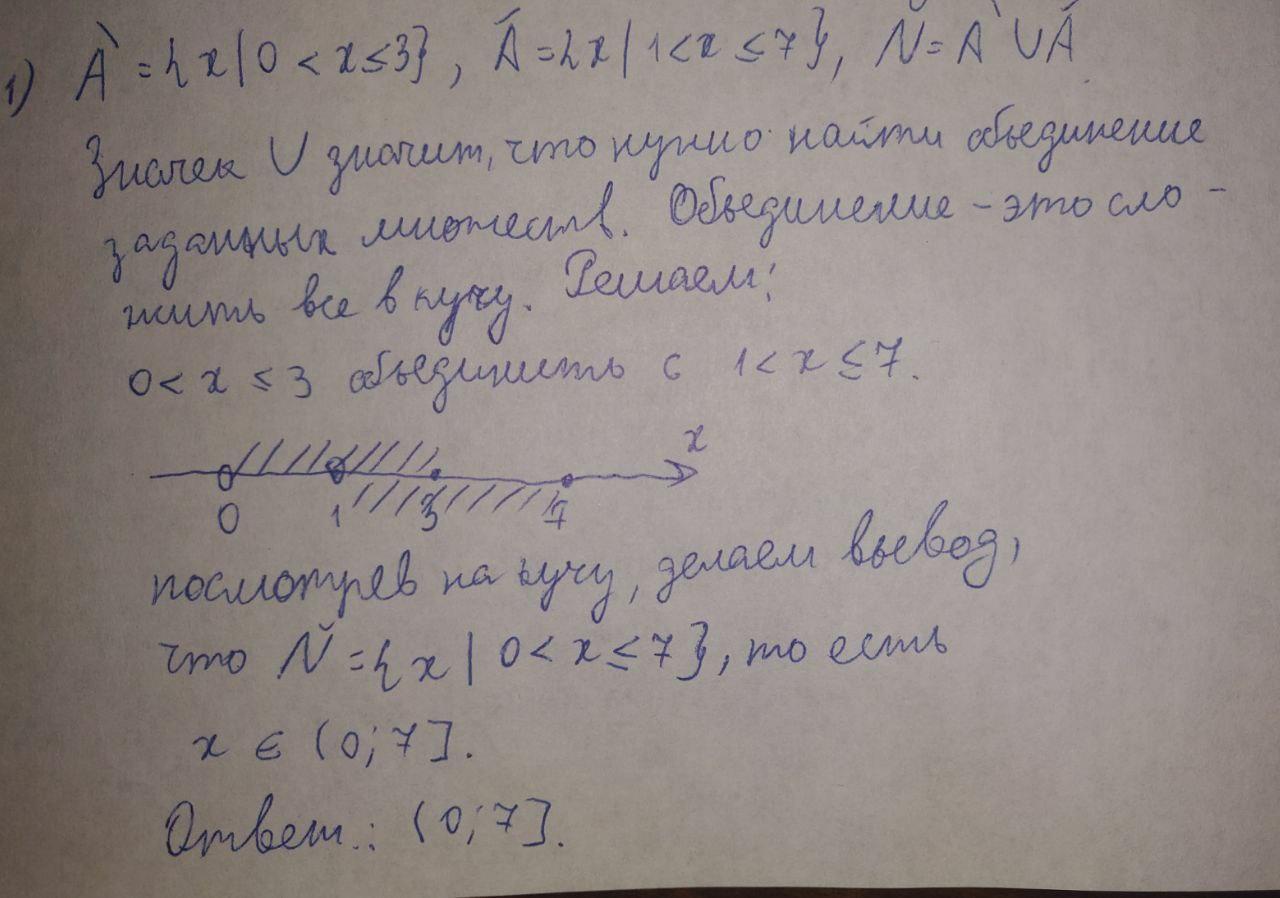 1) À = {x | 0 < x ≤ 3}, Á = {x | 1 < x ≤ 7}, Ñ = À ∪ Á
Значек ∪ значит, что нужно найти объединение
заданных множеств. Объединение - это сло-
жить все в кучу. Решаем:
0 < x ≤ 3 объединить с 1 < x ≤ 7.
x
0 1 3 7
посмотрев на кучу, делаем вывод,
что Ñ = {x | 0 < x ≤ 7}, то есть
x ∈ (0; 7].
Ответ: (0; 7].